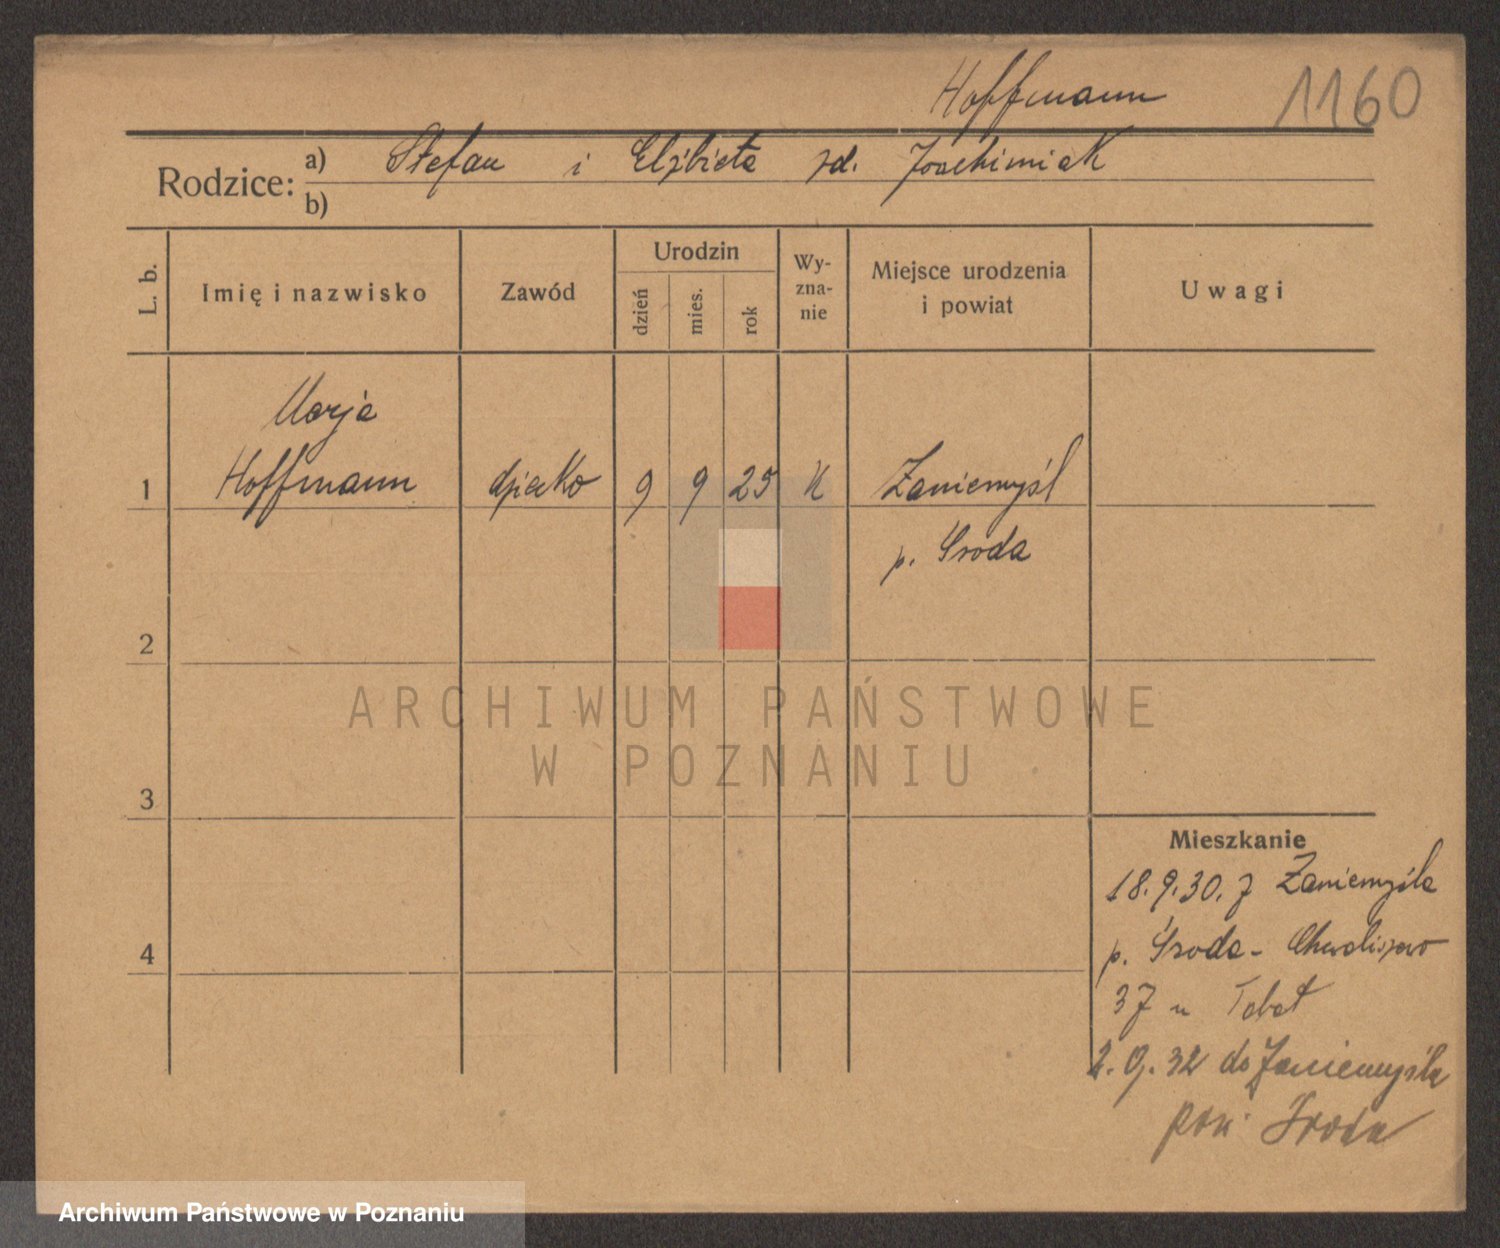 Hoffmann 1160
Rodzice: a) Stefan i Elżbieta zd. Joachimiak
b)
L. b.
Imię i nazwisko
Zawód
Urodzin
dzień
mies.
rok
Wy-
zna-
nie
Miejsce urodzenia
i powiat
Uwagi
Marja
1 Hoffmann dziecko 9 9 25 K Zaniemyśl
p. Środa
2
ARCHIWUM PAŃSTWOWE
W POZNANIU
3
Mieszkanie
18.9.30. z Zaniemyśla
4 p. Środa - Chwaliszewo
37 u Tabat
2.9.32 do Zaniemyśla
pow. Środa
Archiwum Państwowe w Poznaniu